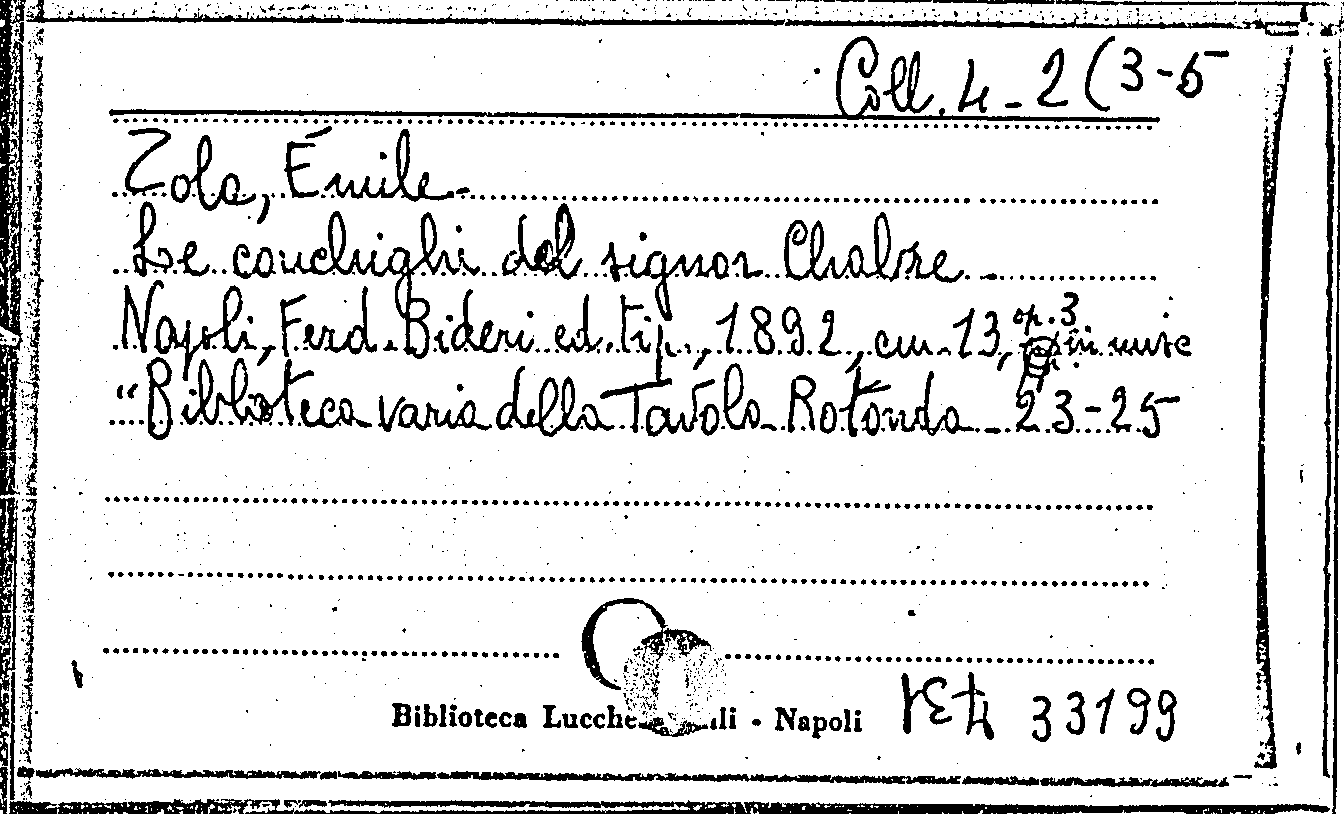 Coll. 4-2 (3-5
Zola, Émile-
Le conchighi del signor Chabre -
Napoli, Ferd. Bideri ed. tip., 1892, cm. 13, op. 3 in misc
"Biblioteca varia della Tavola Rotonda - 23-25
Biblioteca Lucche lli - Napoli
33199